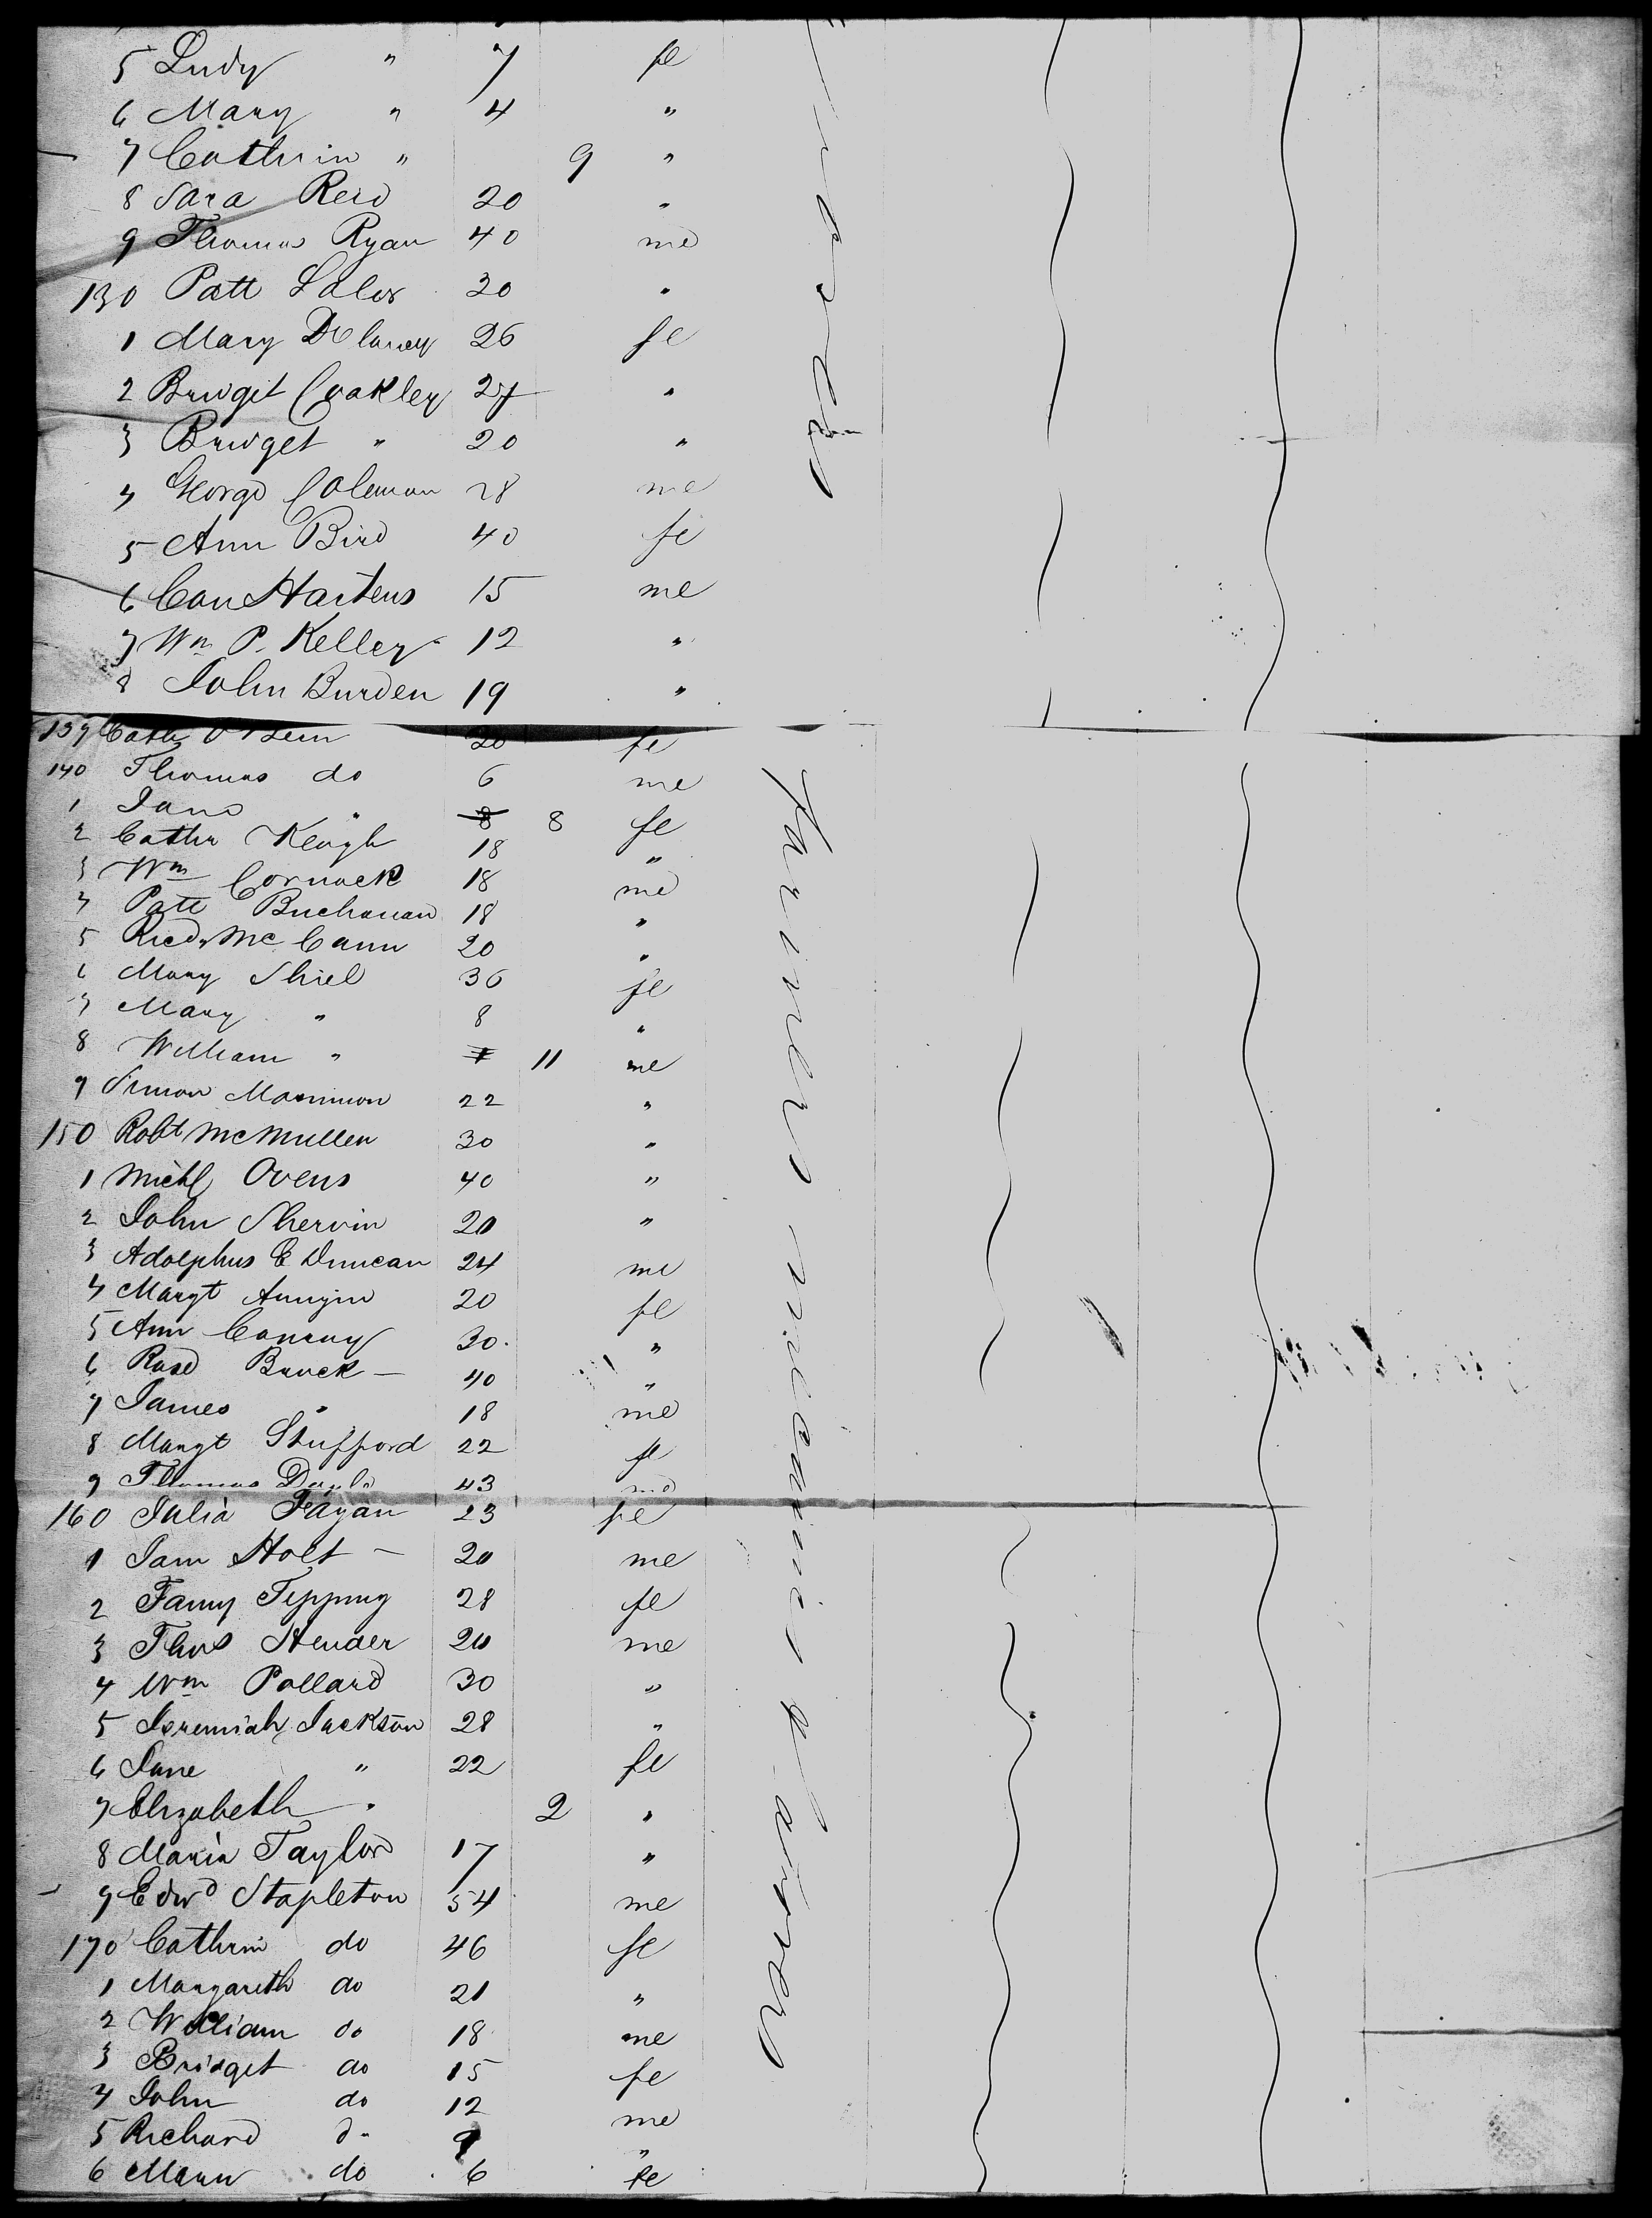 5 Judy " 7 fe
6 Mary " 4 "
7 Cathrin " 9 "
8 Sara Reid 20 "
9 Thomas Ryan 40 me
130 Patt Lalor 30 "
1 Mary Delaney 26 fe
2 Bridgit Coakley 27 "
3 Bridget " 20 "
4 George Coleman 28 me
5 Ann Bird 40 fe
6 Con Hartens 15 me
7 Wm P. Kelley 12 "
8 John Burden 19 "
139 Cath O'Bein 30 fe
140 Thomas do 6 me
1 Jane " 8 8 fe
2 Cathr Keough 18 "
3 Wm Cormack 18 me
4 Patt Buchanan 18 "
5 Ricd. McCann 20 "
6 Mary Shiel 36 fe
7 Mary " 8 "
8 William " 11 me
9 Simon 22 "
150 Robt McMullen 30 "
1 Michl Ovens 40 "
2 John Shervin 20 "
3 Adolphus E Duncan 24 me
4 Margt 20 fe
5 Ann 30 "
6 Rose 40 "
7 James " 18 me
8 Margt Stufford 22 fe
9 Thomas 43 me
160 Julia Fagan 23 fe
1 Sam Holt 20 me
2 Fanny Tipping 28 fe
3 Thos Hender 20 me
4 Wm Pollard 30 "
5 Jeremiah Jackson 28 "
6 Jane " 22 fe
7 Elizabeth " 2 "
8 Maria Taylor 17 "
9 Edwd Stapleton 54 me
170 Cathrin do 46 fe
1 Margareth do 21 "
2 William do 18 me
3 Bridget do 15 fe
4 John do 12 me
5 Richard do 9 "
6 Mann do 6 fe
farmers mecanics &